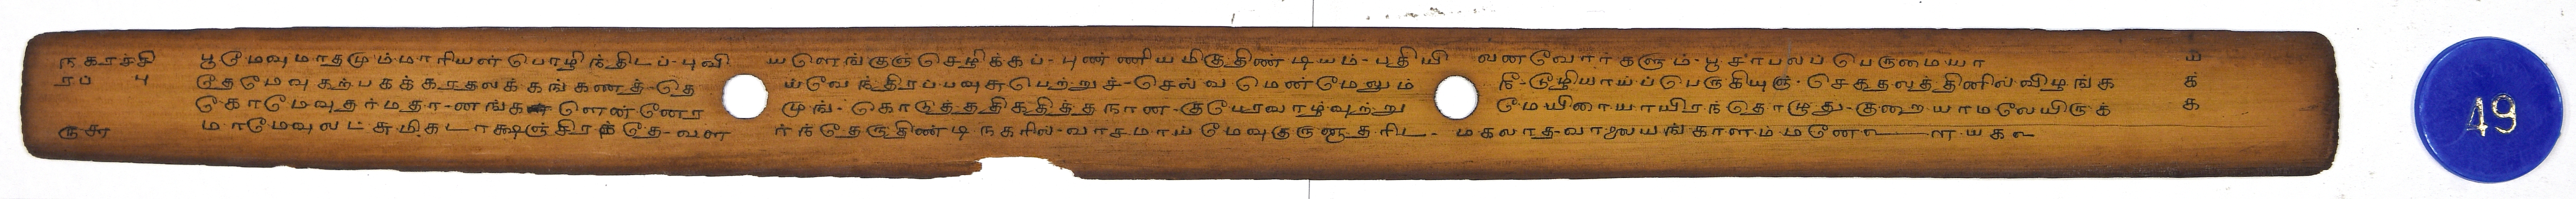 நகரச்சி பூமேவுமாதமும்மாரியள் பொழிந்திடப்-புவி யெளங்குஞ்செழிக்கப்-புண்ணியமிகுதிண்டியம்-புதியி வானவோர்களும்-பூசாபலப்பெருமையா ய்
ரப் பு தேமேவுகற்பகக்காதலக்கங்கணத்-தெ ய்வேந்திரப்பவுசுபெற்றுச்-செல்வமென்மேலும் நீடூழியாய்ப்பெருகியுஞ்-செகதலத்தினில்விழங்க க்
கோமேவுதர்மதா-னங்க ளென்ணேர முங்-கொடுத்ததிகதித்தநான-குபேரவாழ்வுற்று மேயிரையாயிரந்தொழுது-குறையாமலேயிருக் க
௫௪ மாமேவுலட்சுமிகடாக்ஷஞ்சிரந்தே-வள ர்ந்தேருதிண்டிநகரில்-வாசமாய்மேவுகுருணாதரிட- மகலாத-வாலையங்காளம்மணே
49